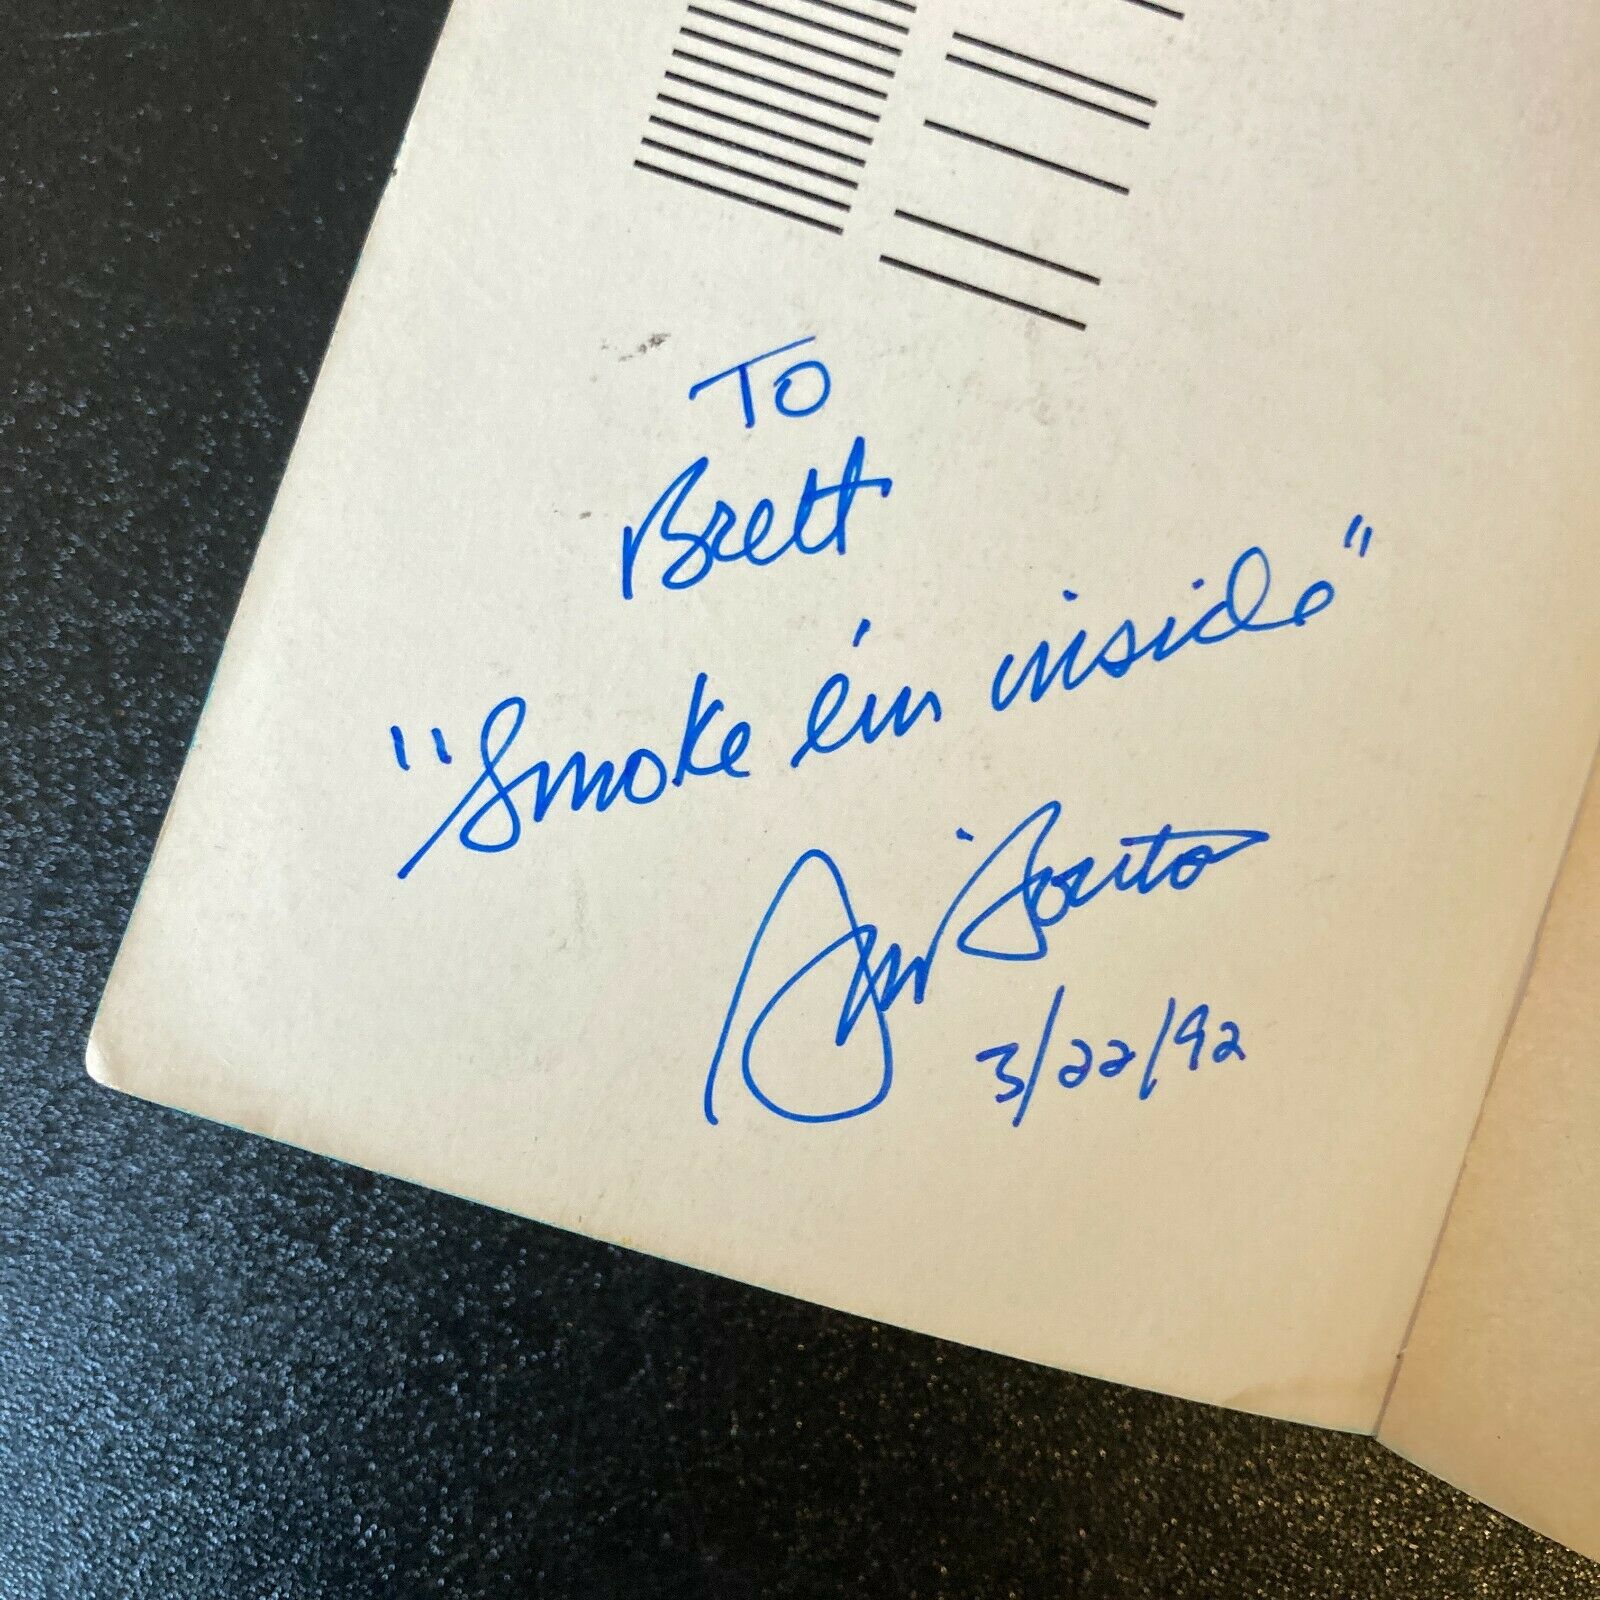 To
Brett
"Smoke 'em inside"
Jim Bouton
3/22/92